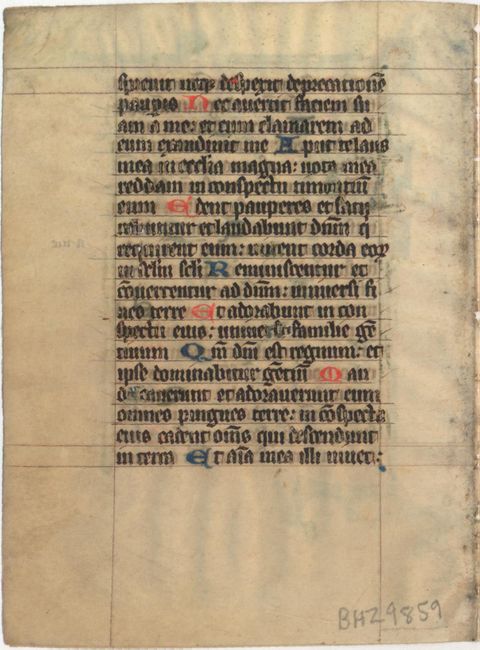 spreuit neqꝫ despexit deprecationē
paupis Nec auertit faciem su
am a me: et cum clamarem ad
eum exaudiuit me Aput te laus
mea in ecclia magna: uota mea
reddam in conspectu timentiū
eum Edent pauperes et satu
rabuntur et laudabunt dnm q
requirent eum: uiuent corda eoꝝ
in sclm scli Reminiscentur et
cōuertentur ad dnm: uniuersi fi
nes terre Et adorabunt in con
spectu eius: uniuerse familie gē
tium Qm dni est regnum: et
ipse dominabitur gētiū Man
ducauerunt et adorauerunt eum
omnes pingues terre: in cōspectu
eius cadent oms qui descendunt
in terra Et aīa mea illi uiuet:
BHZ9859